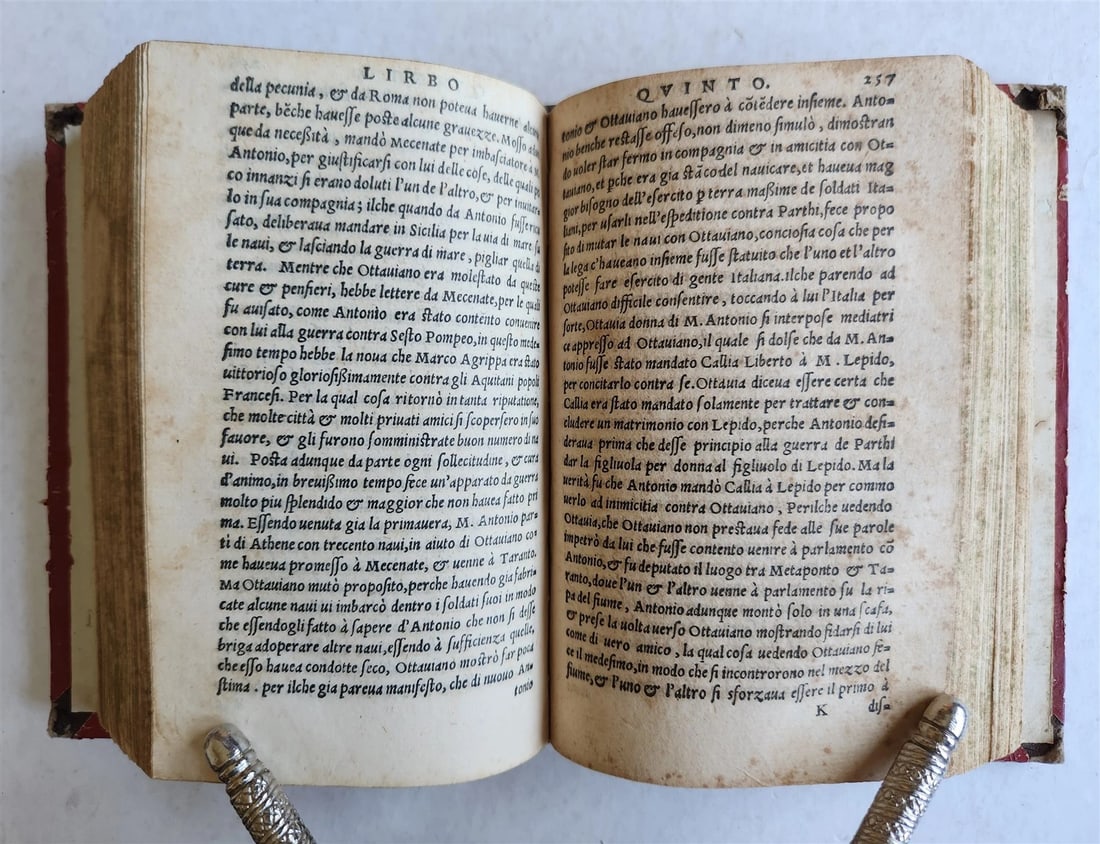 LIRBO
della pecunia, & da Roma non poteua hauerne alcuna
parte, bẽche hauesse poste alcune grauezze. Mosso
que da necessità, mandò Mecenate per imbasciatore à
Antonio, per giustificarsi con lui delle cose, delle quali
co innanzi si erano doluti l'un de l'altro, & per inuitar-
lo in sua compagnia; ilche quando da Antonio fusse
sato, deliberaua mandare in Sicilia per la uia di mare
le naui, & lasciando la guerra di mare, pigliar quella di
terra. Mentre che Ottauiano era molestato da queste
cure & pensieri, hebbe lettere da Mecenate, per le quali
fu auisato, come Antonio era stato contento conuenire
con lui alla guerra contra Sesto Pompeo, in questo mede-
simo tempo hebbe la noua che Marco Agrippa era stato
uittorioso gloriosißimamente contra gli Aquitani popoli
Francesi. Per la qual cosa ritornò in tanta riputatione,
che molte città & molti priuati amici si scopersero in suo
fauore, & gli furono somministrate buon numero di na
ui. Posta adunque da parte ogni sollecitudine, & cura
d'animo, in breuißimo tempo fece un'apparato da guerra
molto piu splendido & maggior che non hauea fatto pri
ma. Essendo uenuta gia la primauera, M. Antonio par-
tì di Athene con trecento naui, in aiuto di Ottauiano co-
me haueua promesso à Mecenate, & uenne à Taranto.
Ma Ottauiano mutò proposito, perche hauendo gia fabri-
cate alcune naui ui imbarcò dentro i soldati suoi in modo
che essendogli fatto à sapere d'Antonio che non si desse
briga adoperare altre naui, essendo à sufficienza quelle,
che esso hauea condotte seco, Ottauiano mostrò far poca
stima. per ilche gia pareua manifesto, che di nuouo An-
tonio
QVINTO. 257
tonio & Ottauiano hauessero à cõtẽdere insieme. Anto-
nio benche restasse offeso, non dimeno simulò, dimostran
do uoler star fermo in compagnia & in amicitia con Ot-
tauiano, et ꝑche era gia stãco del nauicare, et haueua mag
gior bisogno dell'esercito ꝑ terra maßime de soldati Ita-
liani, per usarli nell'espeditione contra Parthi, fece propo
sito di mutar le naui con Ottauiano, conciosia cosa che per
la lega c'haueano insieme fusse statuito che l'uno et l'altro
potesse fare esercito di gente Italiana. ilche parendo ad
Ottauiano difficile consentire, toccando à lui l'Italia per
sorte, Ottauia donna di M. Antonio si interpose mediatri
ce appresso ad Ottauiano, il quale si dolse che da M. An-
tonio fusse stato mandato Callia Liberto à M. Lepido,
per concitarlo contra se. Ottauia diceua essere certa che
Callia era stato mandato solamente per trattare & con-
cludere un matrimonio con Lepido, perche Antonio desi-
deraua prima che desse principio alla guerra de Parthi
dar la figliuola per donna al figliuolo di Lepido. Ma la
uerità fu che Antonio mandò Callia à Lepido per commo
uerlo ad inimicitia contra Ottauiano, Perilche uedendo
Ottauia, che Ottauiano non prestaua fede alle sue parole
impetrò da lui che fusse contento uenire à parlamento cõ
Antonio, & fu deputato il luogo tra Metaponto & Ta-
ranto, doue l'un & l'altro uenne à parlamento su la ri-
pa del fiume, Antonio adunque montò solo in una scafa,
& prese la uolta uerso Ottauiano mostrando fidarsi di lui
come di uero amico, la qual cosa uedendo Ottauiano fe-
ce il medesimo, in modo che si incontrorono nel mezzo del
fiume, & l'uno & l'altro si sforzaua essere il primo à
K dis-